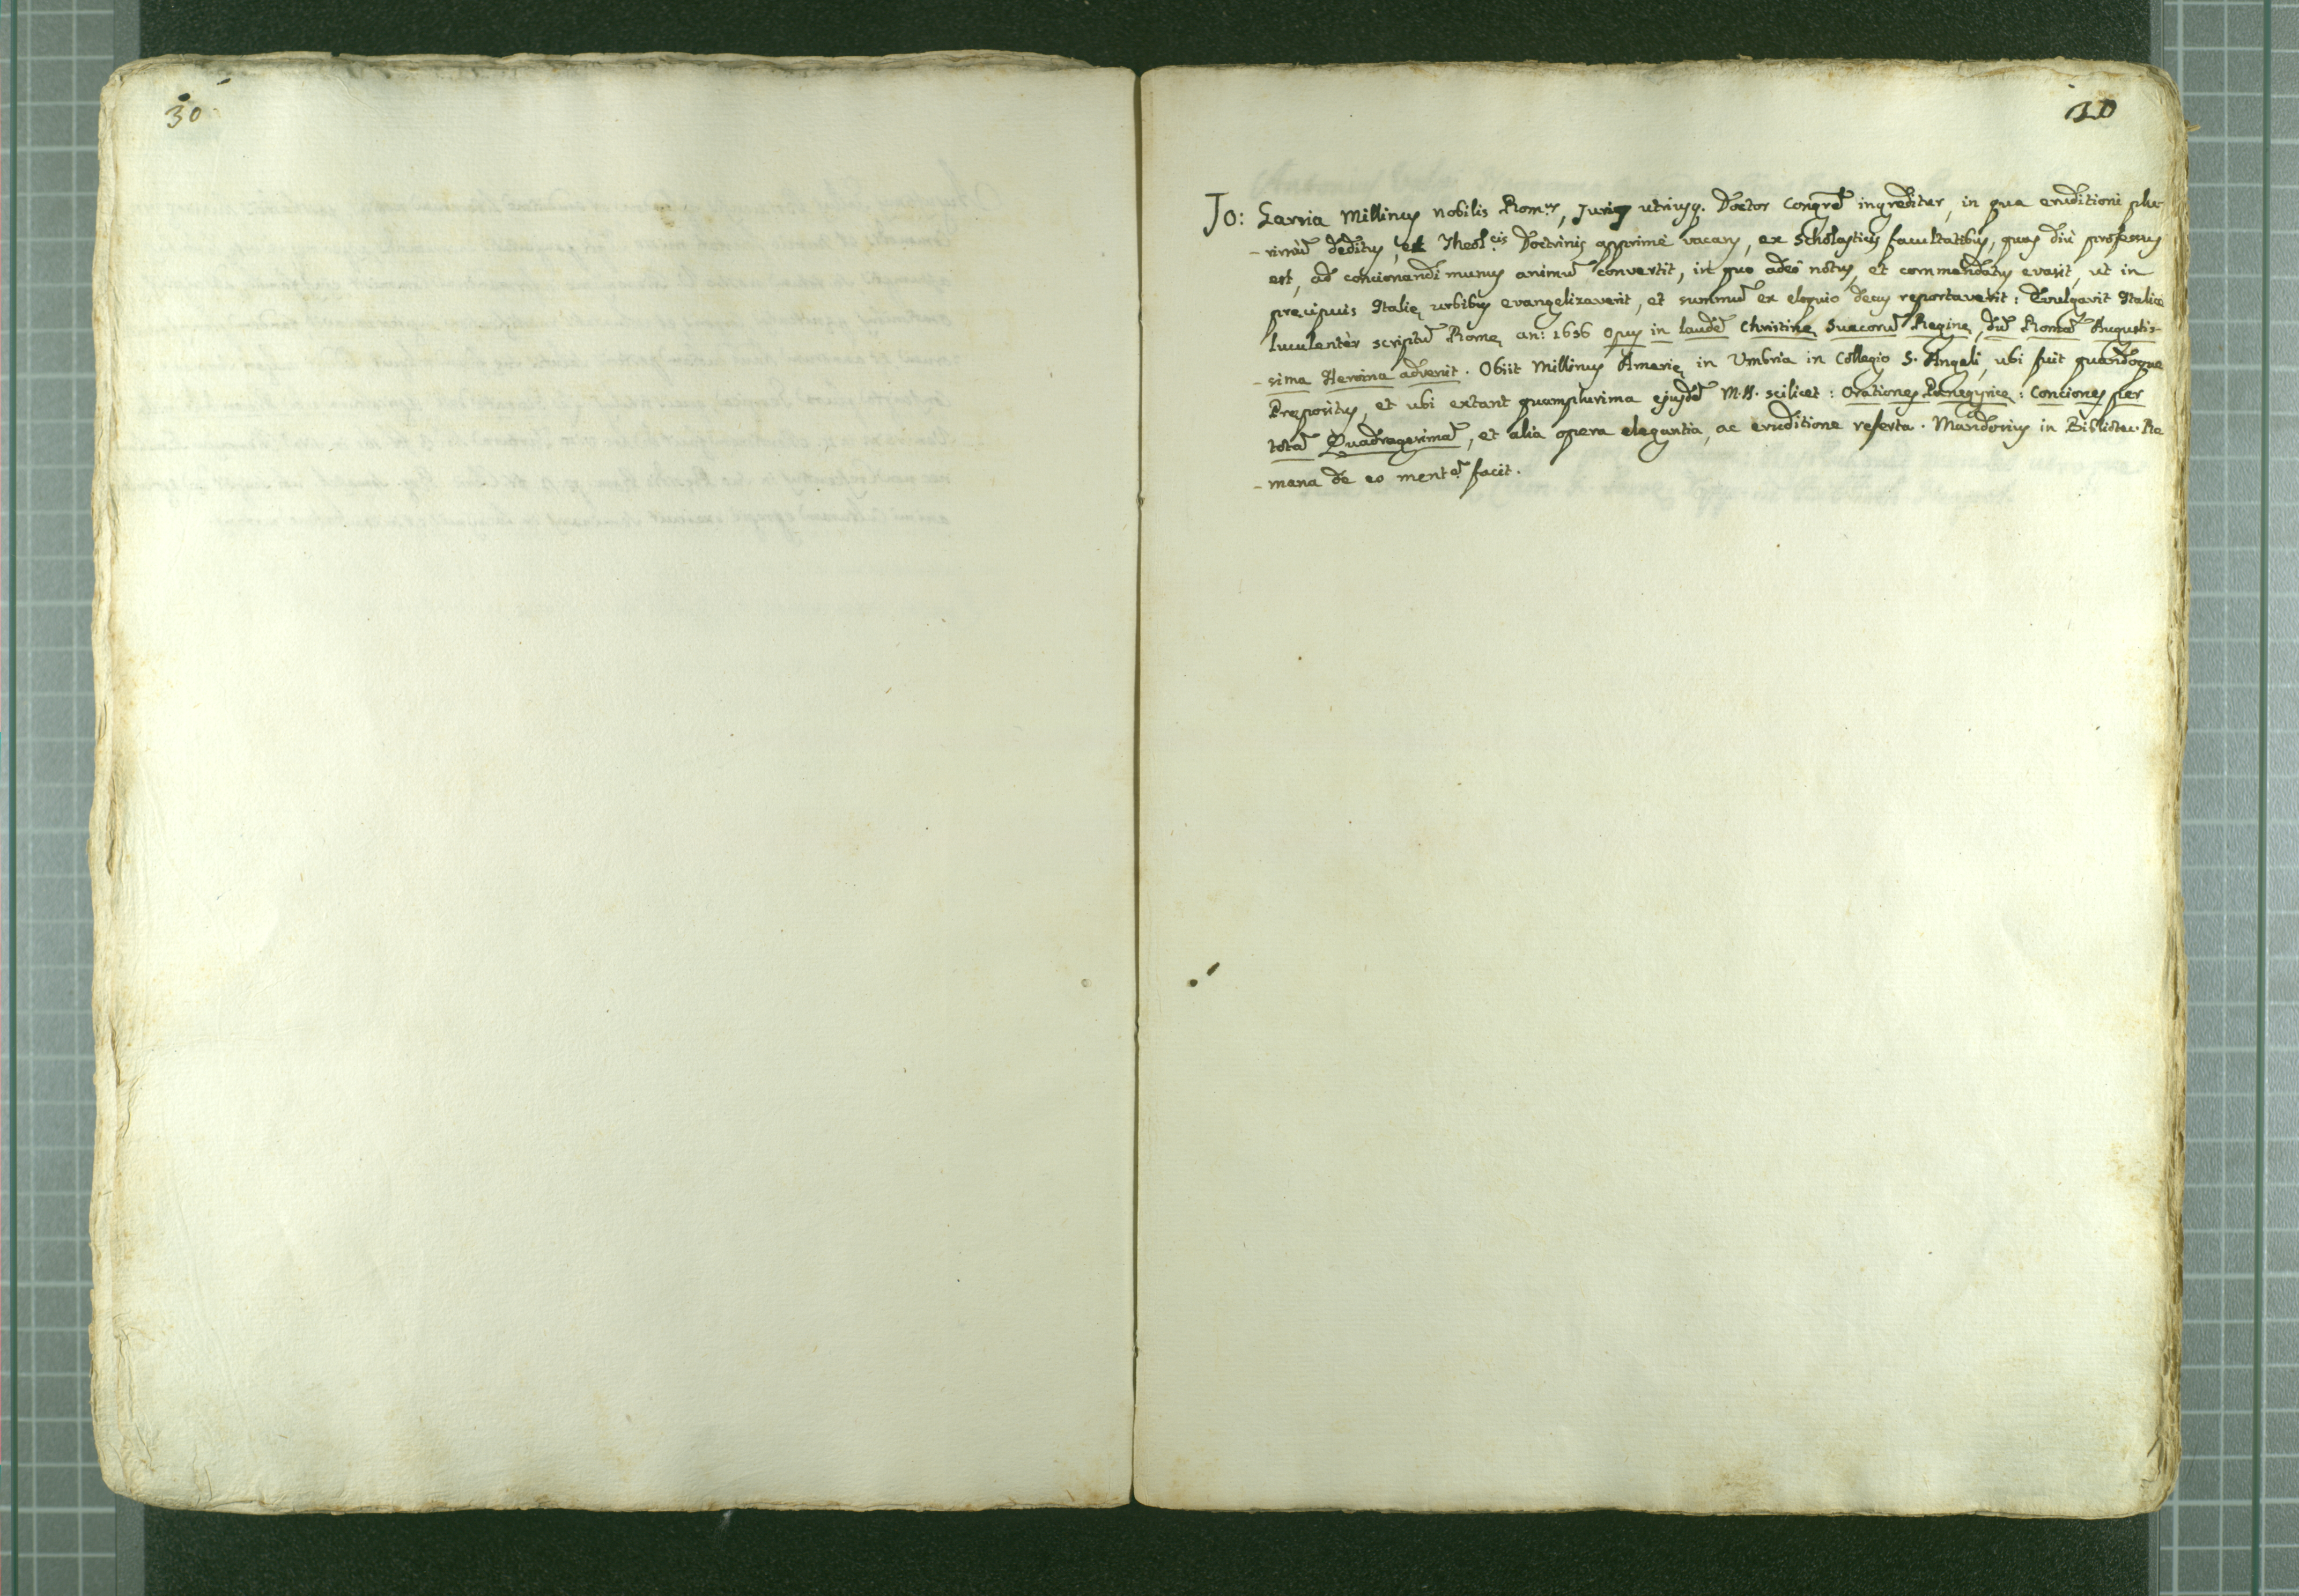 30
30
Jo: Garzia Millinus nobilis Rom.us, Juris utriusq. Doctor Congrēm ingreditur, in qua eruditioni plu-
-rimū deditus, et Theol.cis Doctrinis apprimè vacans, ex Scholasticis facultatibus, quas diù professus
est, ad concionandi munus animū convertit, in quo adeò notus, et commendatus evasit, ut in
precipuis Italię urbibus evangelizaverit, et summū ex eloquio decus reportaverit: Evulgavit Italicè
luculentèr scriptū Romę an: 1656 Opus in laudē Christinę Suecorū Reginę, dū Romā Augustis-
-sima Heroina advenit. Obiit Millinus Amerię in Umbria in Collegio S. Angeli, ubi fuit quandoque
Prępositus, et ubi extant quamplurima ejusdē M.S. scilicet: Orationes Panegyrice: Conciones per
totā Quadragesimā, et alia opera elegantia, ac eruditione referta. Mandosius in Bibliotec. Ro
-mana de eo ment.ē facit.